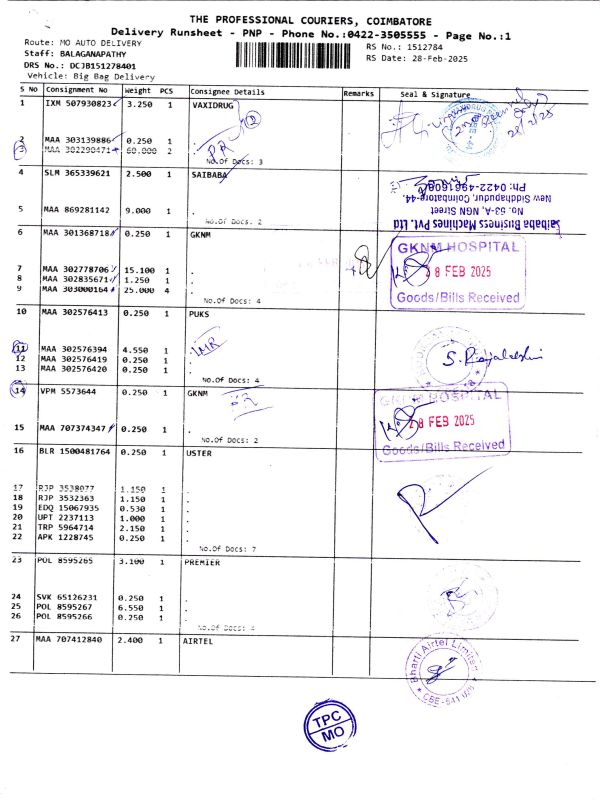 THE PROFESSIONAL COURIERS, COIMBATORE
Delivery Runsheet - PNP - Phone No.:0422-3505555 - Page No.:1
Route: MO AUTO DELIVERY
RS No.: 1512784
Staff: BALAGANAPATHY
RS Date: 28-Feb-2025
DRS No.: DCJB151278401
Vehicle: Big Bag Delivery
S No Consignment No Weight PCS Consignee Details Remarks Seal & Signature
1 IXM 507930823 3.250 1 VAXIDRUG
2 MAA 303139886 0.250 1 .
3 MAA 302290471 60.000 2 .
PR
28/2/25
No.Of Docs: 3
4 SLM 365339621 2.500 1 SAIBABA
5 MAA 869281142 9.000 1 .
No.Of Docs: 2
Saibaba Business Machines Pvt. Ltd
No: 53-A, NGN Street
New Siddhapudur, Coimbatore-44.
Ph: 0422-4961608
6 MAA 301368718 0.250 1 GKNM
7 MAA 302778706 15.100 1 .
8 MAA 302835671 1.250 1 .
9 MAA 303000164 25.000 4 .
No.Of Docs: 4
GKNM HOSPITAL
28 FEB 2025
Goods/Bills Received
10 MAA 302576413 0.250 1 PUKS
11 MAA 302576394 4.550 1 .
12 MAA 302576419 0.250 1 .
13 MAA 302576420 0.250 1 .
No.Of Docs: 4
14 VPM 5573644 0.250 1 GKNM
15 MAA 707374347 0.250 1 .
No.Of Docs: 2
GKNM HOSPITAL
28 FEB 2025
Goods/Bills Received
16 BLR 1500481764 0.250 1 USTER
17 RJP 3538077 1.150 1 .
18 RJP 3532363 1.150 1 .
19 EDQ 15067935 0.530 1 .
20 UPT 2237113 1.000 1 .
21 TRP 5964714 2.150 1 .
22 APK 1228745 0.250 1 .
No.Of Docs: 7
23 POL 8595265 3.100 1 PREMIER
24 SVK 65126231 0.250 1 .
25 POL 8595267 6.550 1 .
26 POL 8595266 0.250 1 .
No.Of Docs: 4
27 MAA 707412840 2.400 1 AIRTEL
Bharti Airtel Limited
TPC
MO